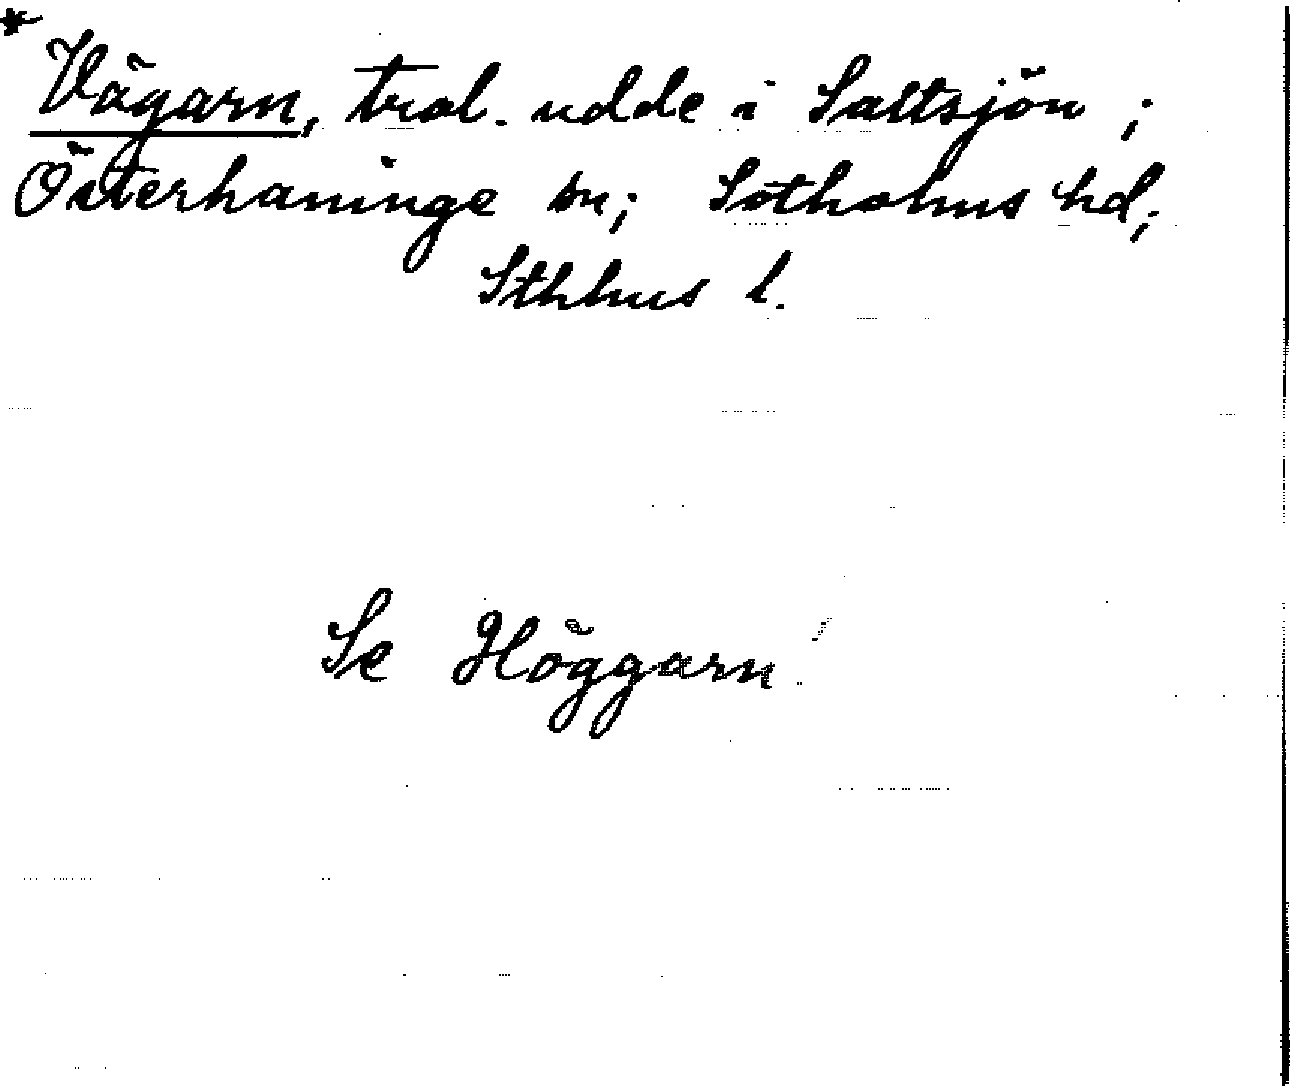 * Vägarn, trol. udde i Saltsjön;
Österhaninge sn; Sotholms hd;
Sthlms l.
Se Höggarn!